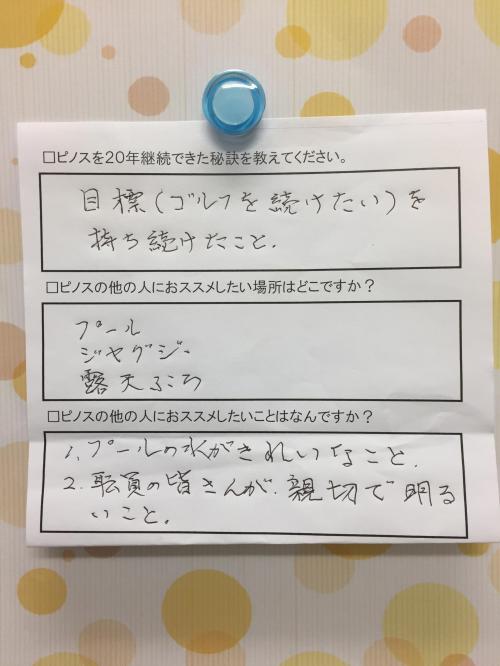 □ピノスを20年継続できた秘訣を教えてください。
目標(ゴルフを続けたい)を
持ち続けたこと.
□ピノスの他の人におススメしたい場所はどこですか？
プール
ジャグジー
露天ふろ
□ピノスの他の人におススメしたいことはなんですか？
1. プールの水がきれいなこと.
2. 職員の皆さんが.親切で明る
いこと。